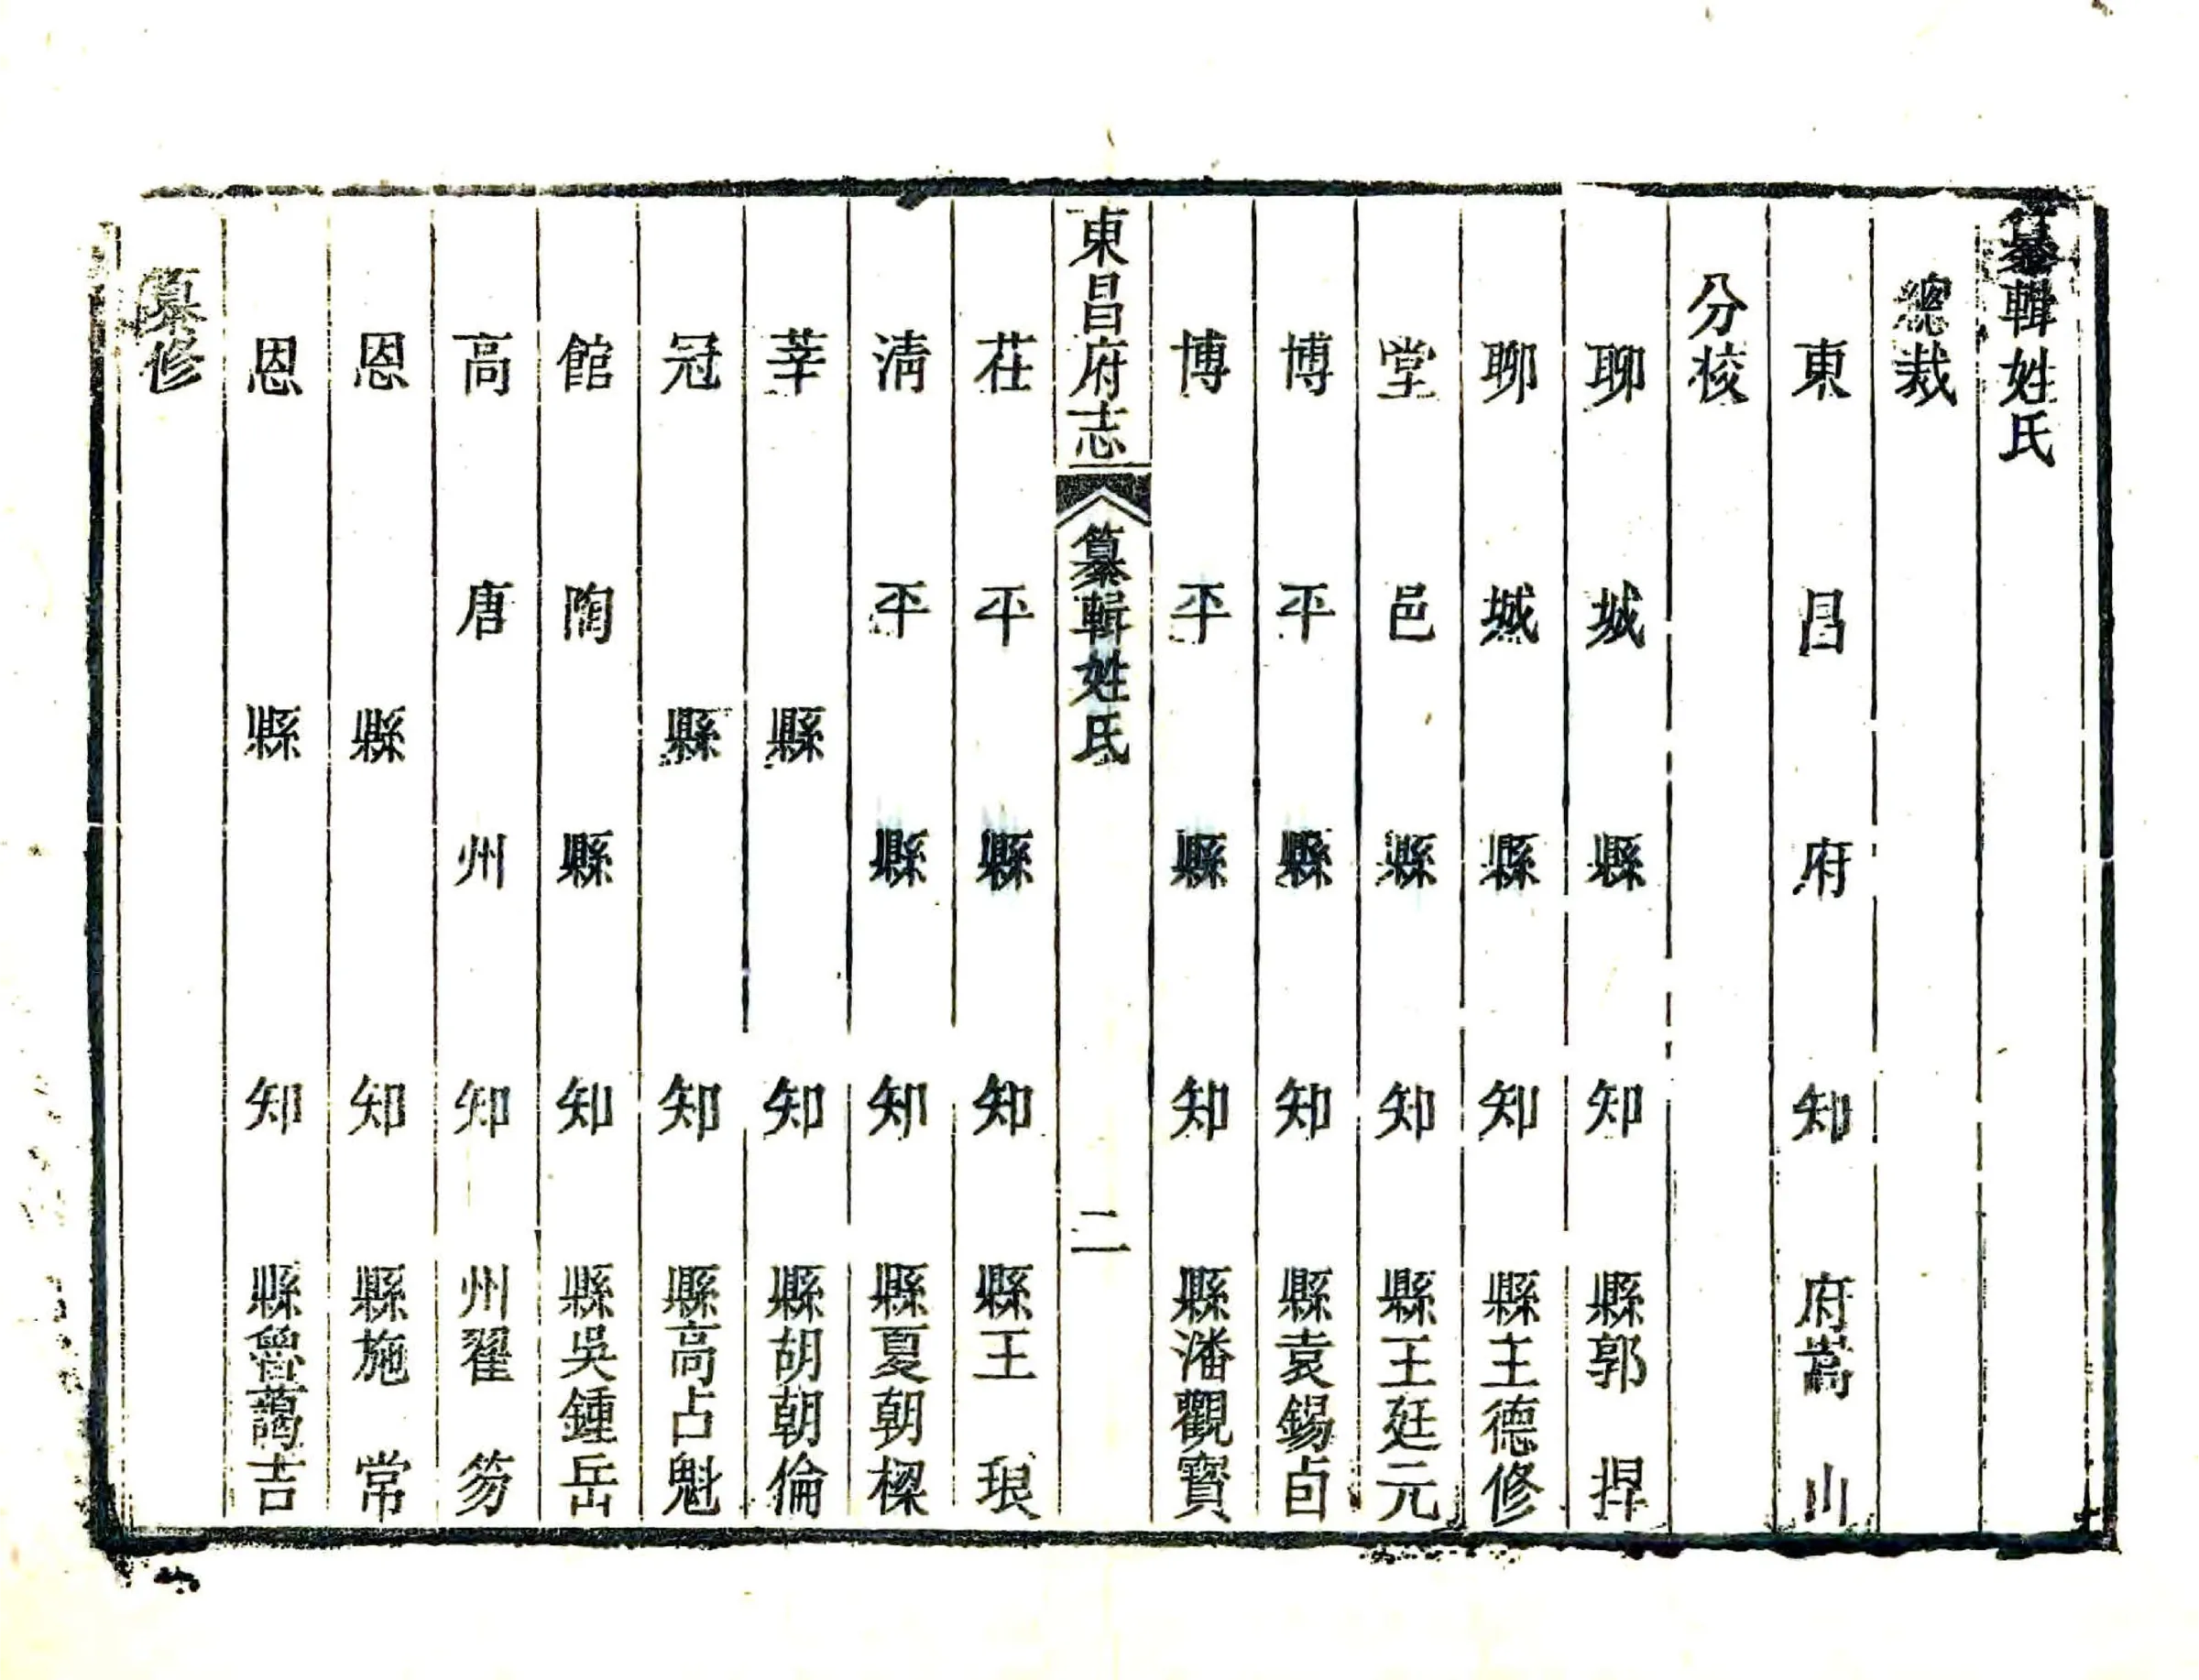 纂輯姓氏
總裁
東昌府知府嵩山
分校
聊城縣知縣郭捍
聊城縣知縣王德修
堂邑縣知縣王廷元
博平縣知縣袁錫卣
博平縣知縣潘觀寶
東昌府志 纂輯姓氏 二
茌平縣知縣王琅
清平縣知縣夏朝樑
莘縣知縣胡朝倫
冠縣知縣高占魁
館陶縣知縣吳鍾岳
高唐州知州翟笏
恩縣知縣施常
恩縣知縣魯藹吉
纂修